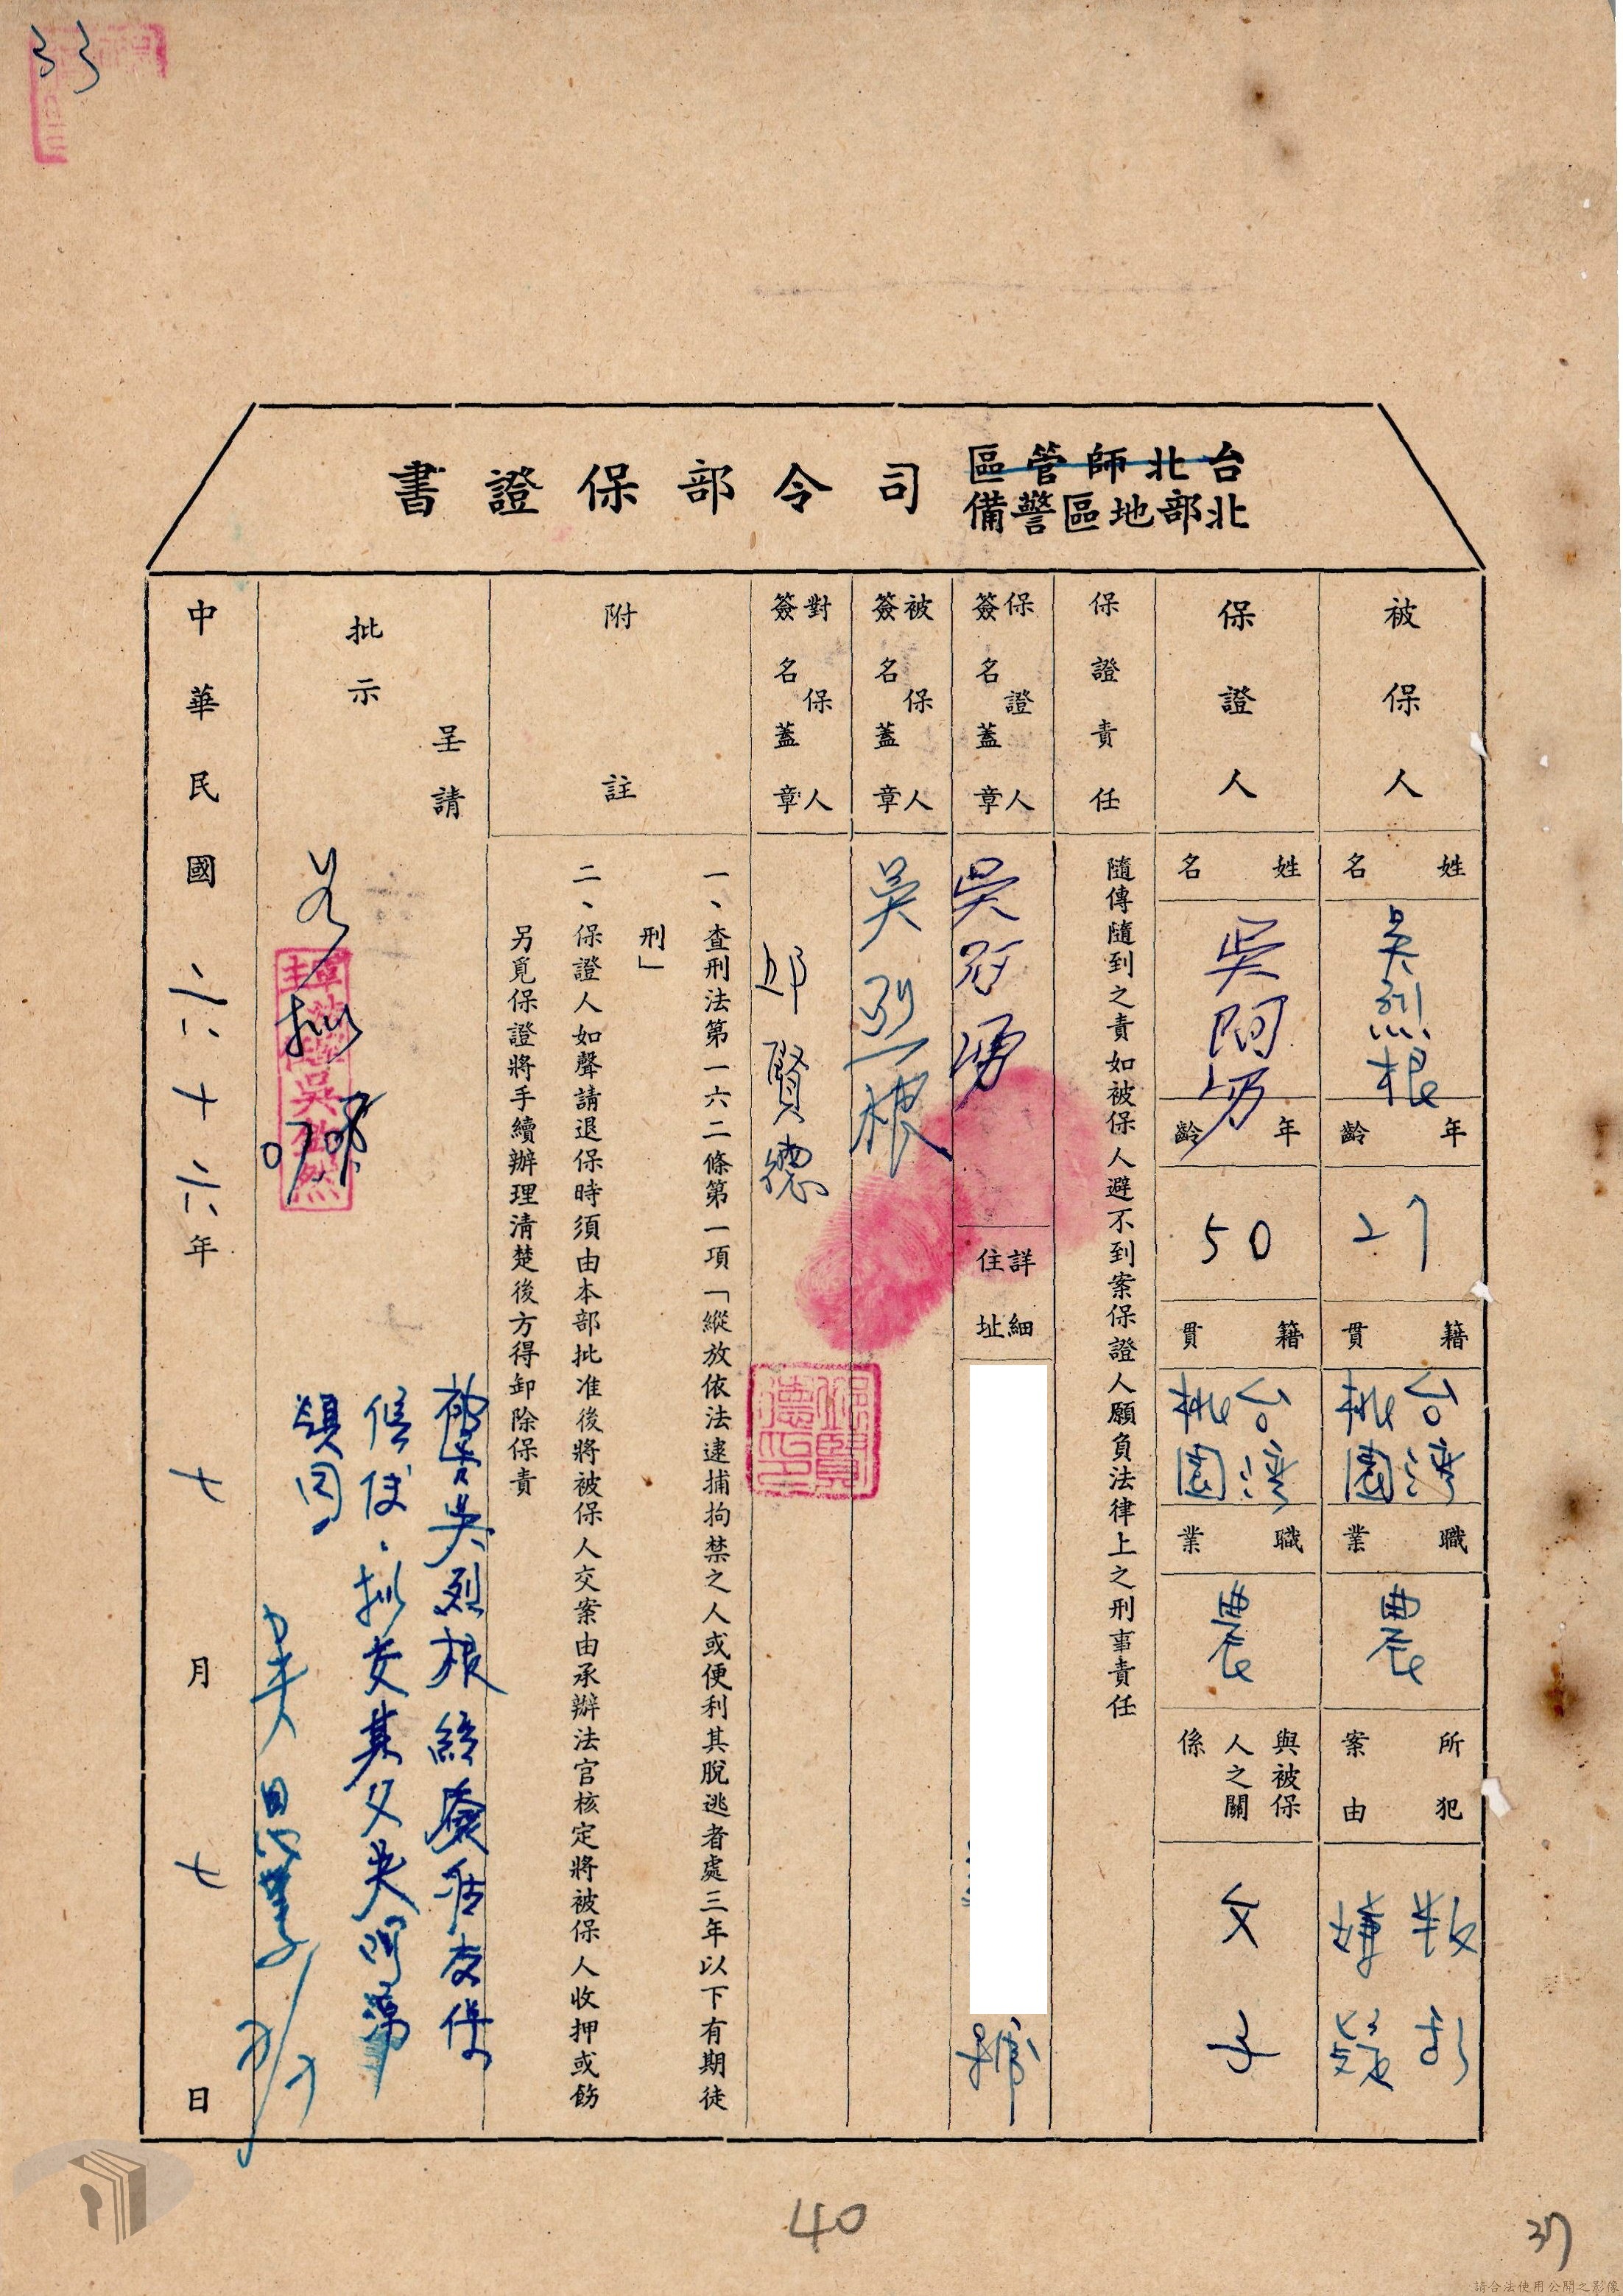 33
台北師管區
北部地區警備
司令部保證書
被保人
姓名
吳烈根
年齡
27
籍貫
台灣
桃園
職業
農
所犯案由
叛亂
嫌疑
保證人
姓名
吳阿
年齡
50
籍貫
台灣
桃園
職業
農
與被保人之關係
父子
保證責任
隨傳隨到之責如被保人避不到案保證人願負法律上之刑事責任
保證人簽名蓋章
吳阿
詳細住址
號
被保人簽名蓋章
吳烈根
對保人簽名蓋章
邱賢德
附註
一、查刑法第一六二條第一項「縱放依法逮捕拘禁之人或便利其脫逃者處三年以下有期徒
刑」
二、保證人如聲請退保時須由本部批准後將被保人交案由承辦法官核定將被保人收押或飭
另覓保證將手續辦理清楚後方得卸除保責
呈請
批示
被告吳烈根經庭准交保
候傳，擬交其父吳阿
領回。
如擬
中華民國六十六年七月七日
40
37
請合法使用公開之影像